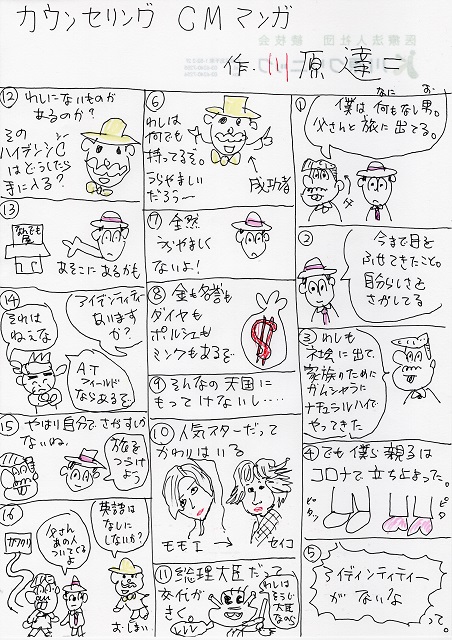 カウンセリング CMマンガ
作.川原達二
①
僕は何もなし男。
なに お
父さんと旅に出てる。
②
今まで目を
ふせてきたこと。
自分らしさと
さがしてる
③
わしも
社会に出て、
家族のために
ガムシャラに
ナチュラルハイで
やってきた
④でも僕ら親子は
コロナで立ち止まった。
ピタッ
ピタッ
⑤
アイディンティティー
がないな
って。
⑥
わしは
何でも
持ってるぞ。
うらやましい
だろうー
成功者
⑦全然
うらやましく
ないよ!
⑧金も名誉も
ダイヤも
ポルシェも
ミンクもあるぞ
$
⑨そんなの天国に
もってけないし・・・・
⑩人気スターだって
かわりはいる
モモエ
セイコ
⑪総理大臣だって
交代が
きく。
わしは
そうじ
大臣
なのら
⑫わしにないものが
あるのか?
その
ハイデンシーC
はどうしたら
手に入る?
⑬
なんでも
屋
あそこにあるかも
⑭
アイデンティティー
ないます
か?
それは
ねえな
AT
フィールド
ならあるぞ
⑮やはり自分でさがすしか
ないね。
旅を
つづけ
よう
⑯
父さん
あの人
ついてくる
よ
英語は
なしに
しないか?
おしまい